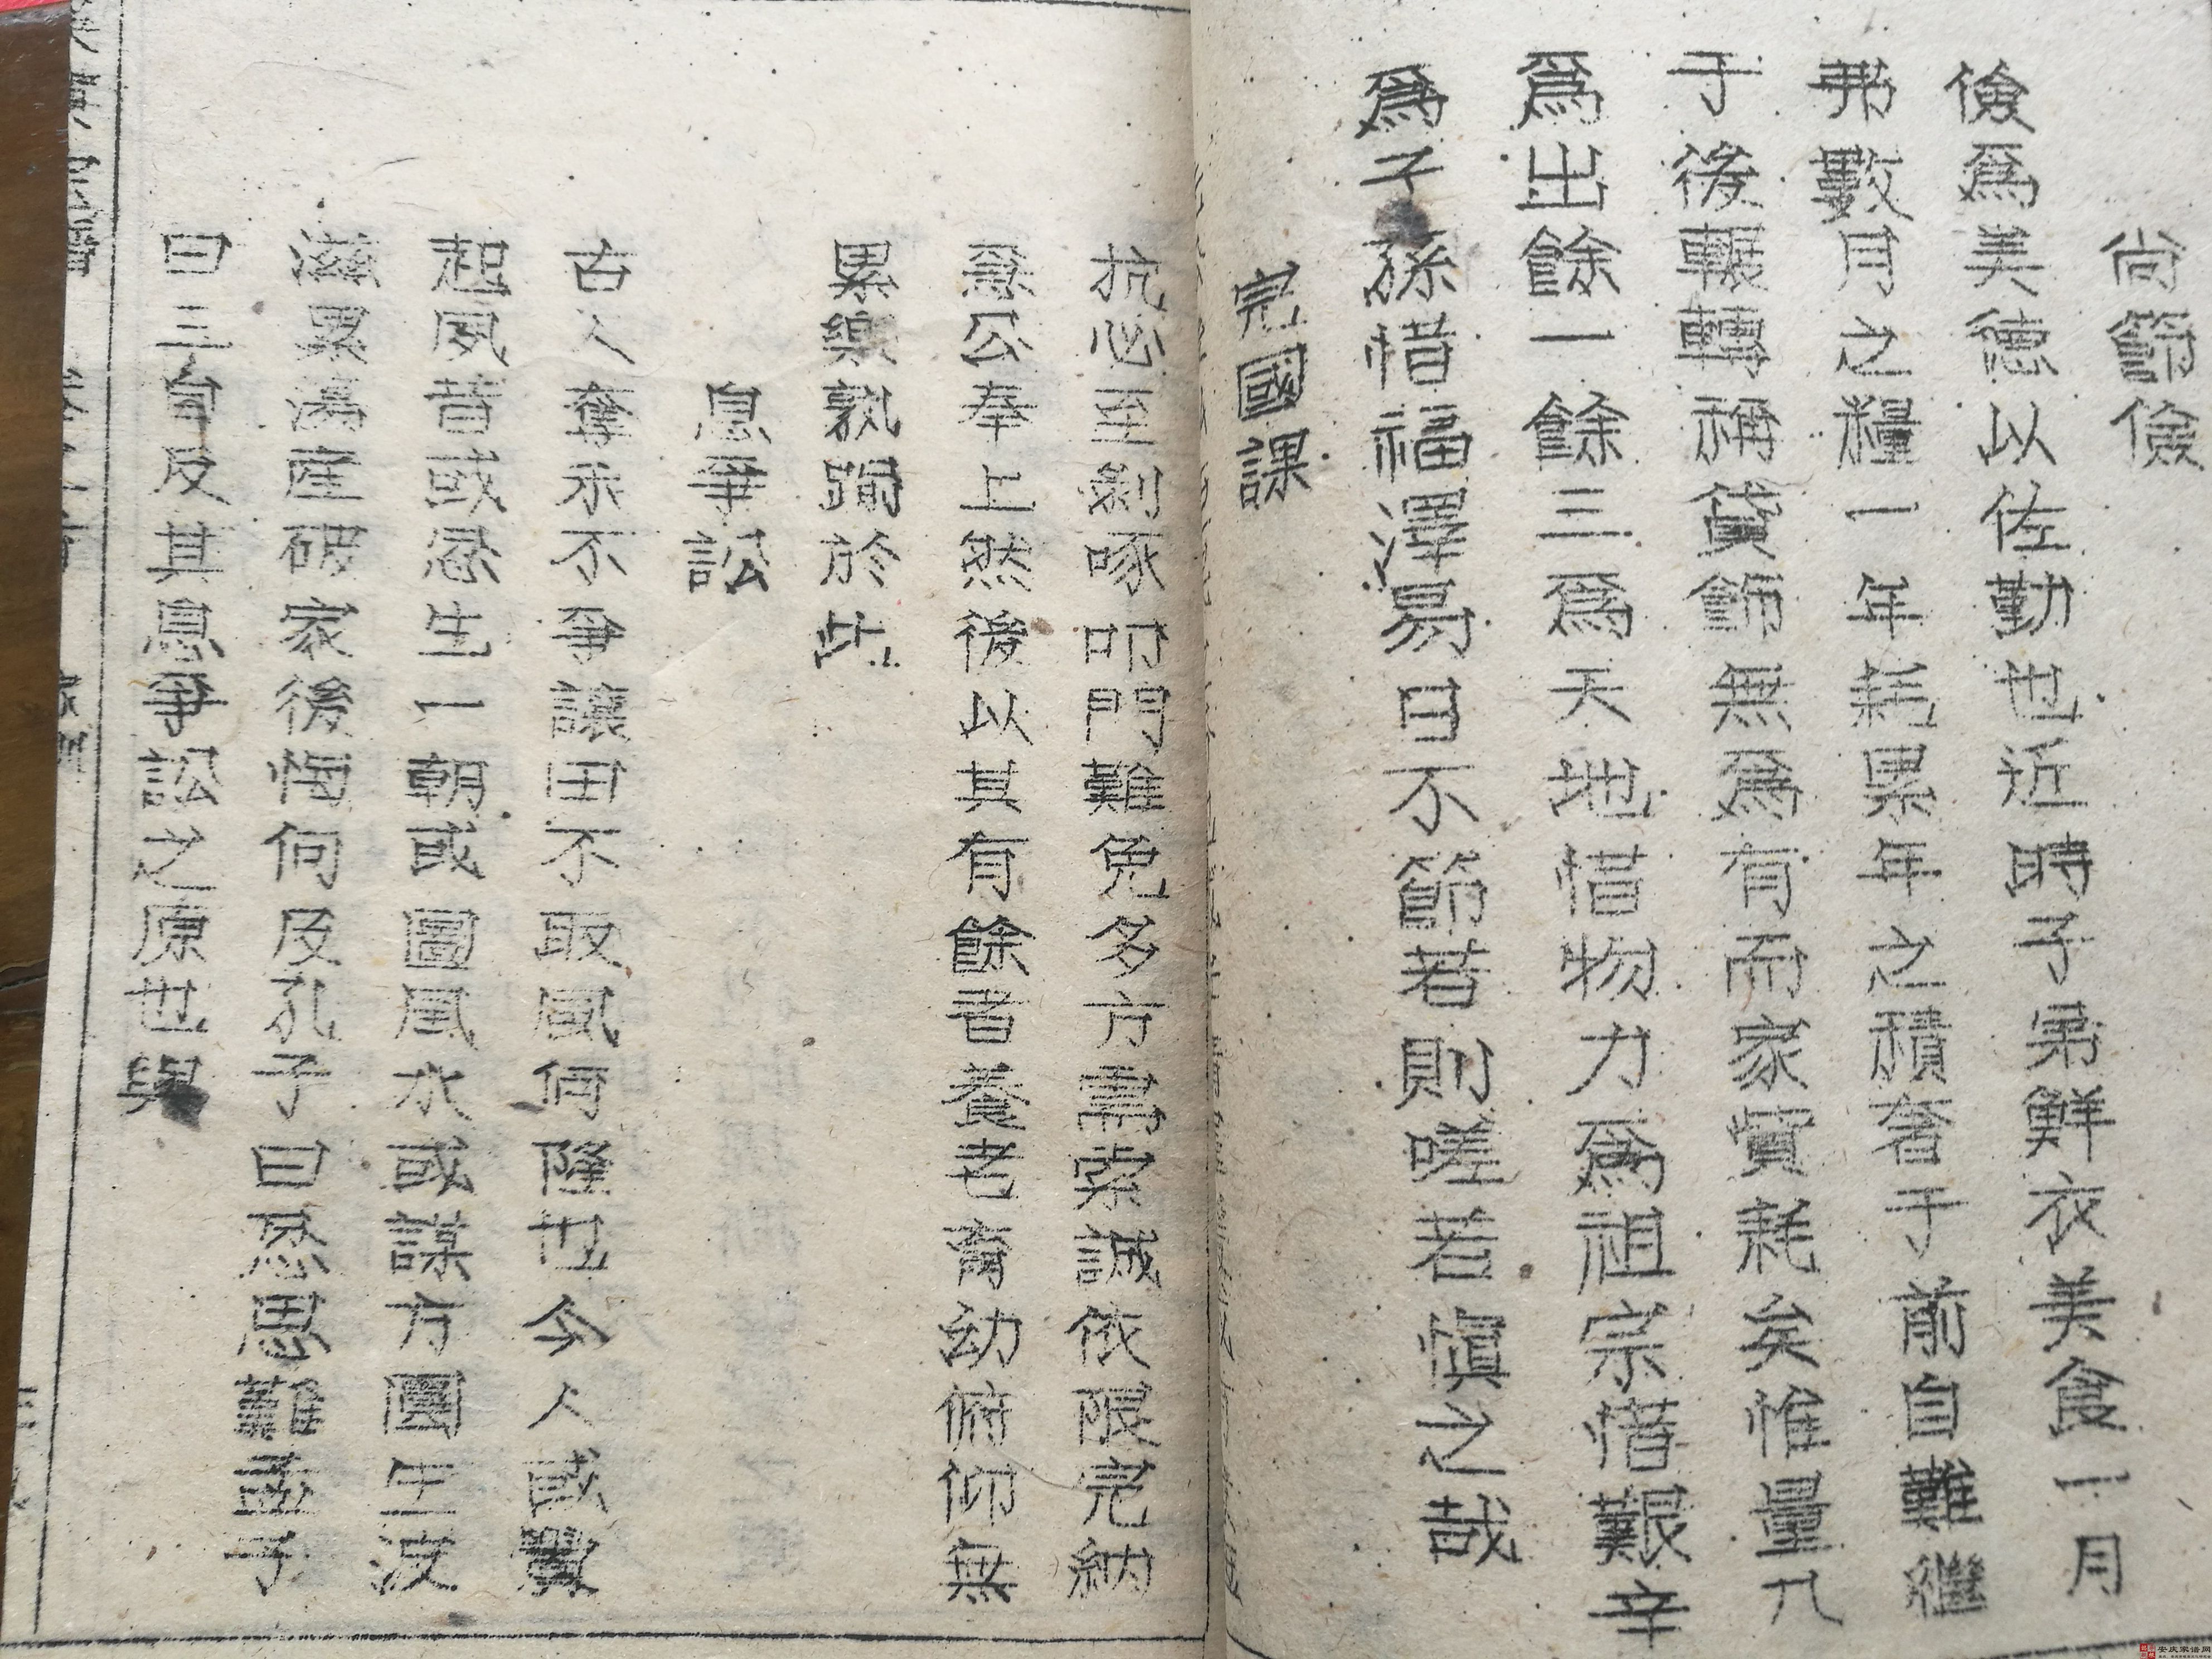 尚節儉
儉爲美德以佐勤也近時子弟鮮衣美食一月
弗數月之糧一年耗累年之積奢于前自難繼
于後輾轉稱貸飾無爲有而家實耗矣惟量入
爲出餘一餘三爲天地惜物力爲祖宗惜艱辛
爲子孫惜福澤易曰不節若則嗟若愼之哉
完國課
抗必至剝啄叩門難免多方需索誠依限完納
急公奉上然後以其有餘者養老畜幼俯仰無
累樂孰踰於此
息爭訟
古人奪禾不爭讓田不取風何隆也今人或釁
起夙昔或忿生一朝或圖風水或謀方圓生波
滋累蕩產破家後悔何及孔子曰忿思難孟子
曰三自反其息爭訟之原也與
家訓
安庆家谱网